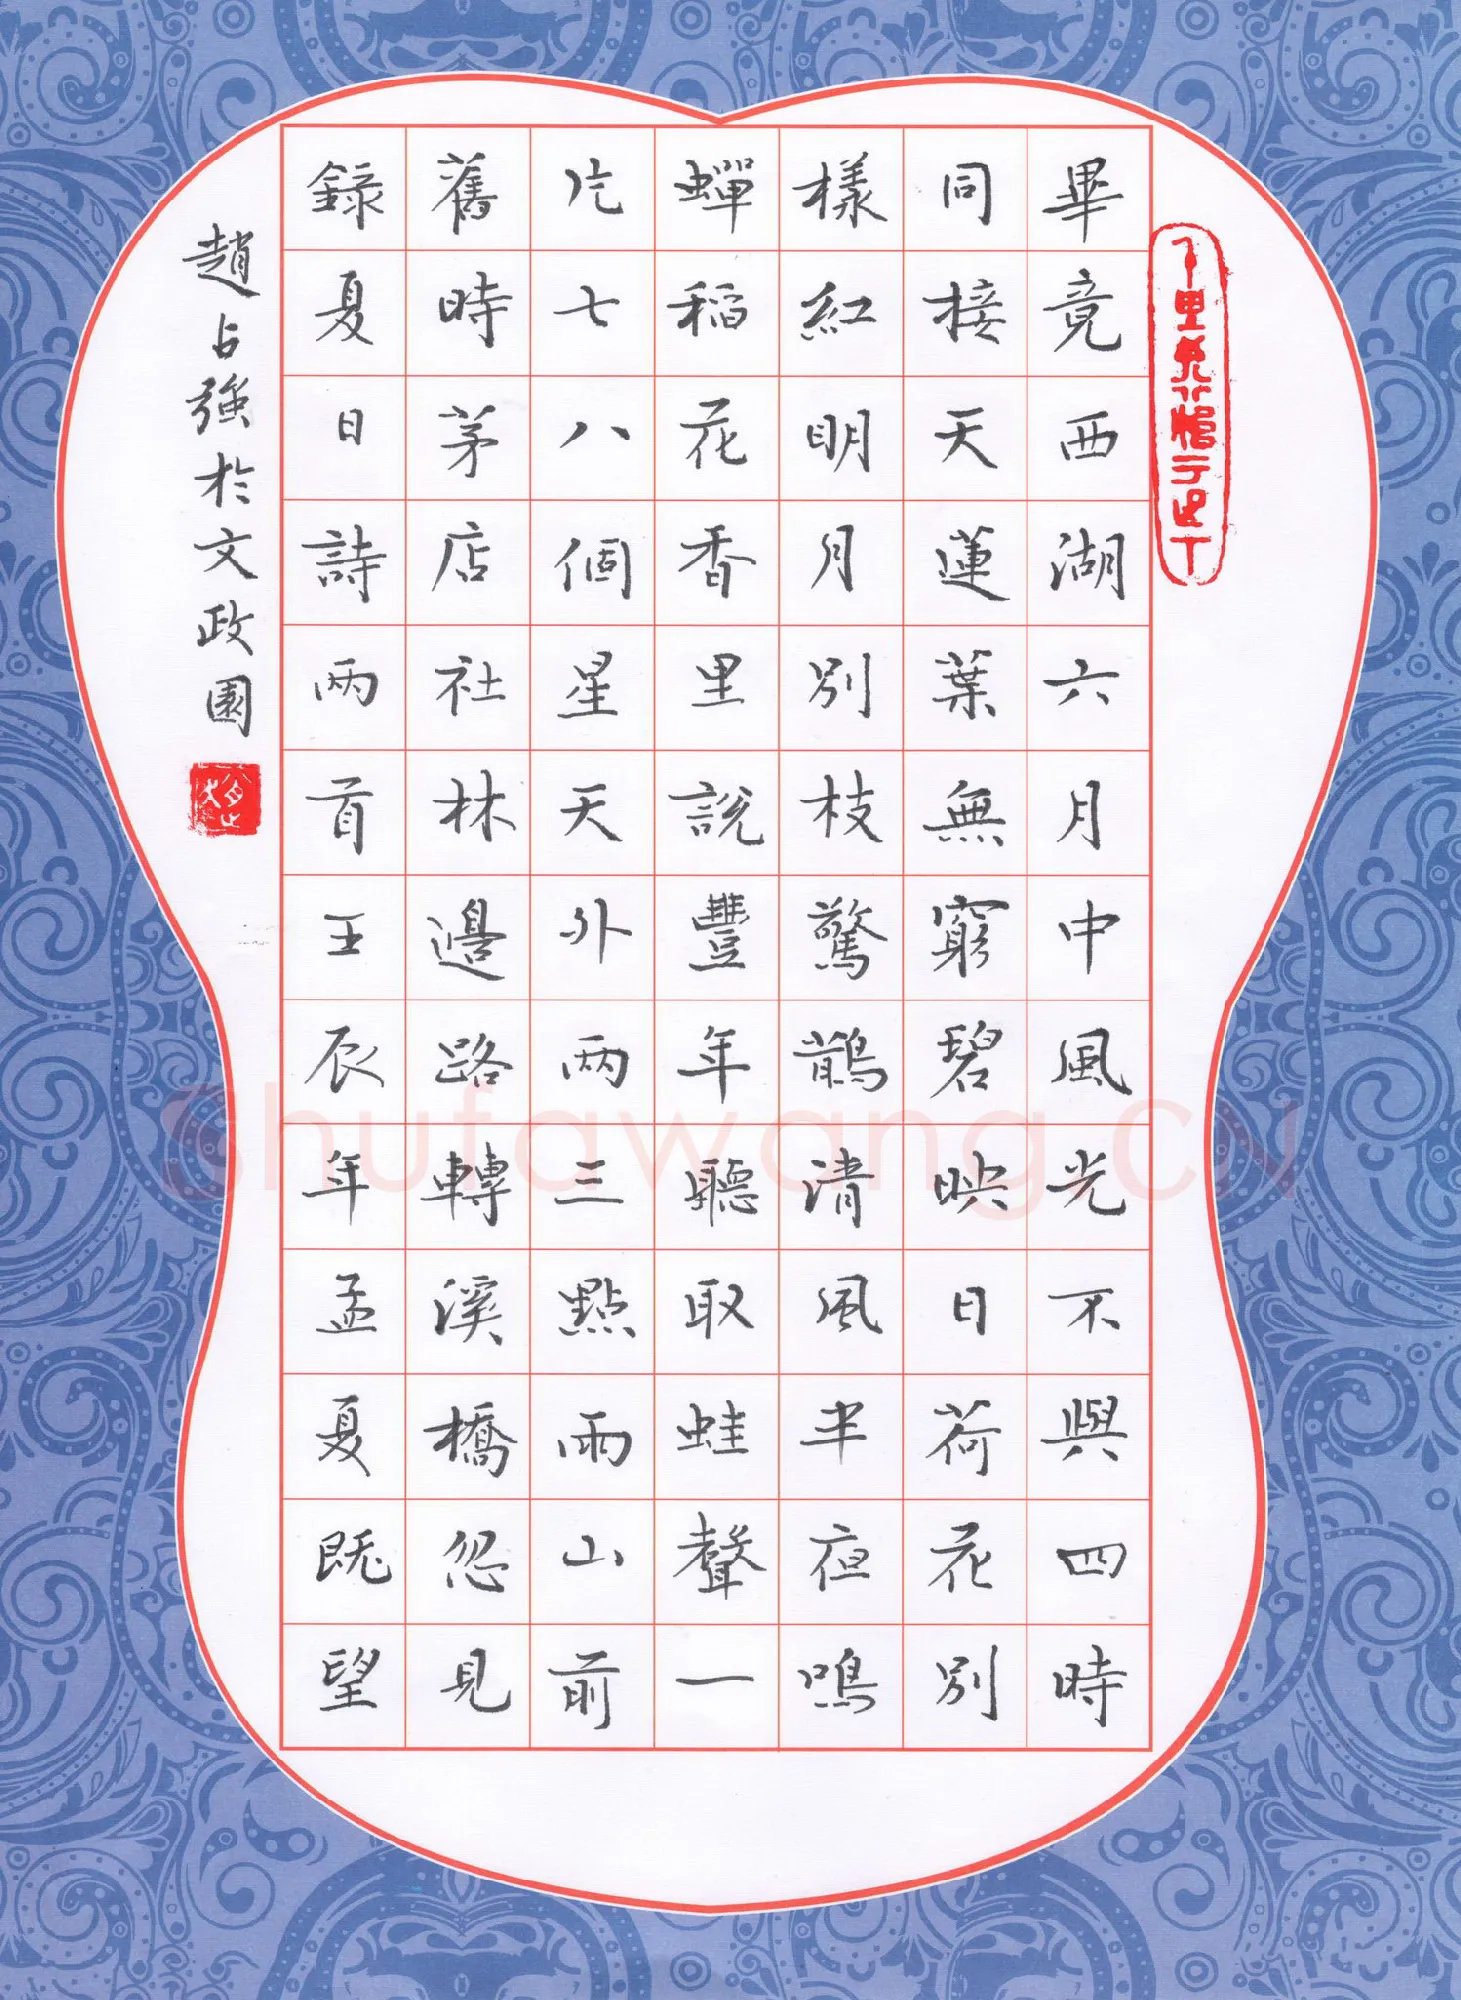 畢竟西湖六月中風光不與四時
同接天蓮葉無窮碧映日荷花別
樣紅明月別枝驚鵲清風半夜鳴
蟬稻花香里說豐年聽取蛙聲一
片七八個星天外兩三點雨山前
舊時茅店社林邊路轉溪橋忽見
錄夏日詩兩首壬辰年孟夏既望
趙占強於文政園
Shufawang.CN